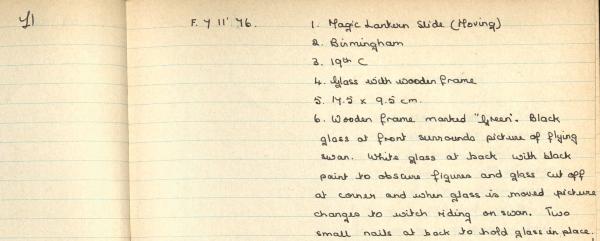 71
F. 7 11' 76.
1. Magic Lantern Slide (Moving)
2. Birmingham
3. 19th C
4. Glass with wooden frame
5. 17.5 x 9.5 cm.
6. Wooden frame marked "Green". Black
glass at front surrounds picture of flying
swan. White glass at back with black
paint to obscure figures and glass cut off
at corner and when glass is moved picture
changes to witch riding on swan. Two
small nails at back to hold glass in place.